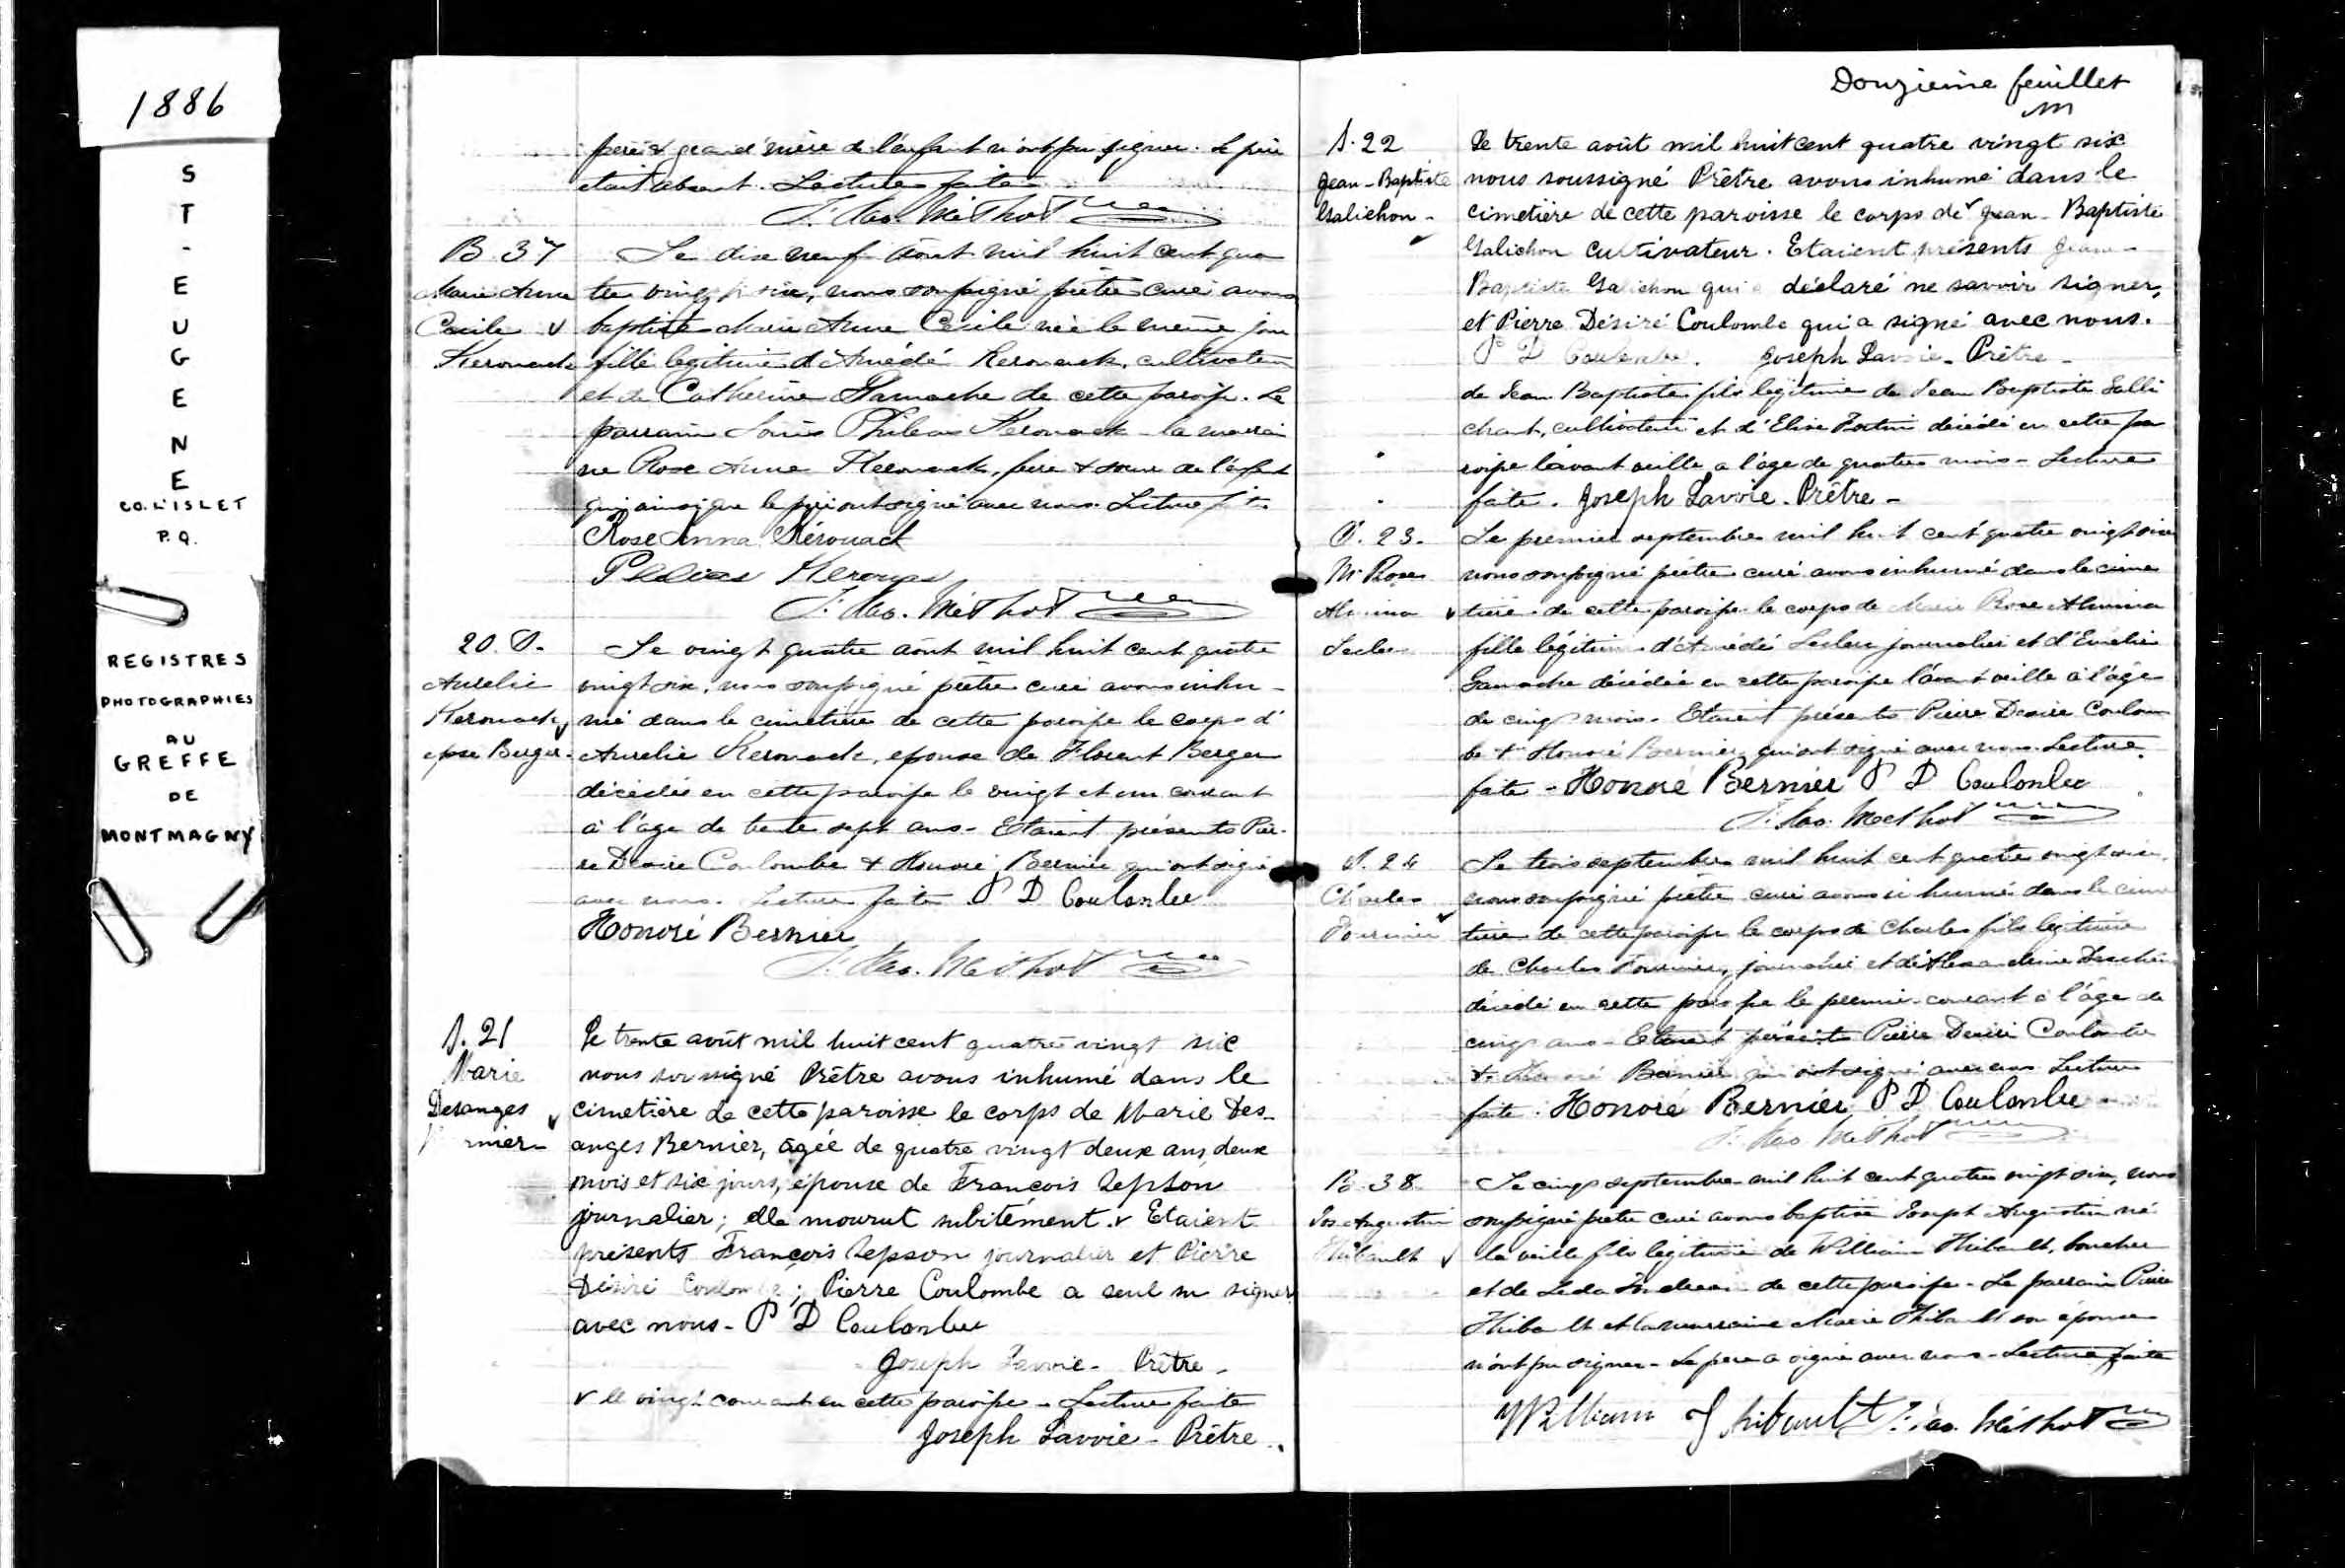 1886
S
T
-
E
U
G
E
N
E
CO. L'ISLET
P.Q.
REGISTRES
PHOTOGRAPHIES
AU
GREFFE
DE
MONTMAGNY
père & grand'mère de l'enfant n'ont pu signer. Le père
étant absent. Lecture faite
Méthot
B. 37
Marie Anne
Cécile v
Kerouack
Le dix neuf août mil huit cent qua
tre vingt six, nous soussigné prêtre curé avons
baptisé Marie Anne Cécile née le même jour
fille légitime d'Amédé Kerouack, cultivateur
et de Catherine Gamache de cette paroisse. Le
parrain Louis Phileas Kerouack la marrai
ne Rose Anna Kerouack, frère & soeur de l'enfant
qui ainsi que le père ont signé avec nous. Lecture faite
Rose Anna Kérouack
Méthot
20. S.
Aurélie
Kerouack v
épse Berger
Le vingt quatre août mil huit cent quatre
vingt six, nous soussigné prêtre curé avons inhu-
mé dans le cimetière de cette paroisse le corps d'
Aurelie Kerouack, epouse de Florent Berger
décédée en cette paroisse le vingt et un courant
à l'age de trente sept ans - Etaient présents Pier-
re Desire Coulombe & Honoré Bernier qui ont signé
avec nous. Lecture faite P D Coulombe
Honoré Bernier
Méthot
S. 21
Marie
Desanges v
Le trente août mil huit cent quatre vingt six
nous soussigné Prêtre avons inhumé dans le
cimetière de cette paroisse le corps de Marie Des-
anges Bernier, agée de quatre vingt deux ans, deux
mois et six jours, épouse de François Lepson
journalier; elle mourut subitement. v Etaient
présents François Lepson journalier et Pierre
Désiré Coulombe; Pierre Coulombe a seul su signer
avec nous - P D Coulombe
Joseph Lavoie - Prêtre -
v le vingt courant en cette paroisse - Lecture faite
Joseph Lavoie - Prêtre.
Douzieme feuillet
S. 22
Jean-Baptiste
Galichon -
Le trente août mil huit cent quatre vingt six
nous soussigné Prêtre avons inhumé dans le
cimetière de cette paroisse le corps de v Jean-Baptiste
Galichon cultivateur. Etaient présents Jean-
Baptiste Galichon qui a déclaré ne savoir signer,
et Pierre Désiré Coulombe qui a signé avec nous.
P D Coulombe. Joseph Lavoie - Prêtre -
de Jean Baptiste fils légitime de Jean Baptiste Galli
chant, cultivateur et d'Elise Fortin décédé en cette pa
roisse l'avant veille a l'age de quatre mois - Lecture
faite. Joseph Lavoie. Prêtre -
S. 23.
M. Rose
Alvina v
Leclerc
Le premier septembre mil huit cent quatre vingt six
nous soussigné prêtre curé avons inhumé dans le cime
tière de cette paroisse le corps de Marie Rose Alvina
fille légitime d'Amédé Leclerc journalier et d'Emélie
Gamache décédée en cette paroisse l'avant veille à l'âge
de cinq mois - Etaient présents Pierre Desire Coulom
be & Honoré Bernier qui ont signé avec nous. Lecture
faite - Honore Bernier P D Coulombe
Methot
S. 24
Charles
Fournier
Le trois septembre mil huit cent quatre vingt six,
nous soussigné prêtre curé avons inhumé dans le cime
tière de cette paroisse le corps de Charles fils légitime
de Charles Fournier, journalier et d'Alexandrine
décédé en cette paroisse le premier courant à l'âge de
cinq ans - Etaient présents Pierre Desiré Coulombe
& Honoré Bernier qui ont signé avec nous Lecture
faite. Honoré Bernier P D Coulombe
Méthot
B. 38
Jos Augustin
Thibault v
Le cinq septembre mil huit cent quatre vingt six, nous
soussigné prêtre curé avons baptisé Joseph Augustin né
la veille fils légitime de William Thibault, boucher
et de Leda de cette paroisse - Le parrain Pierre
Thibault et la marraine Marie Thibault son épouse
n'ont pu signer - Le pere a signé avec nous - Lecture faite
William Thibault Méthot